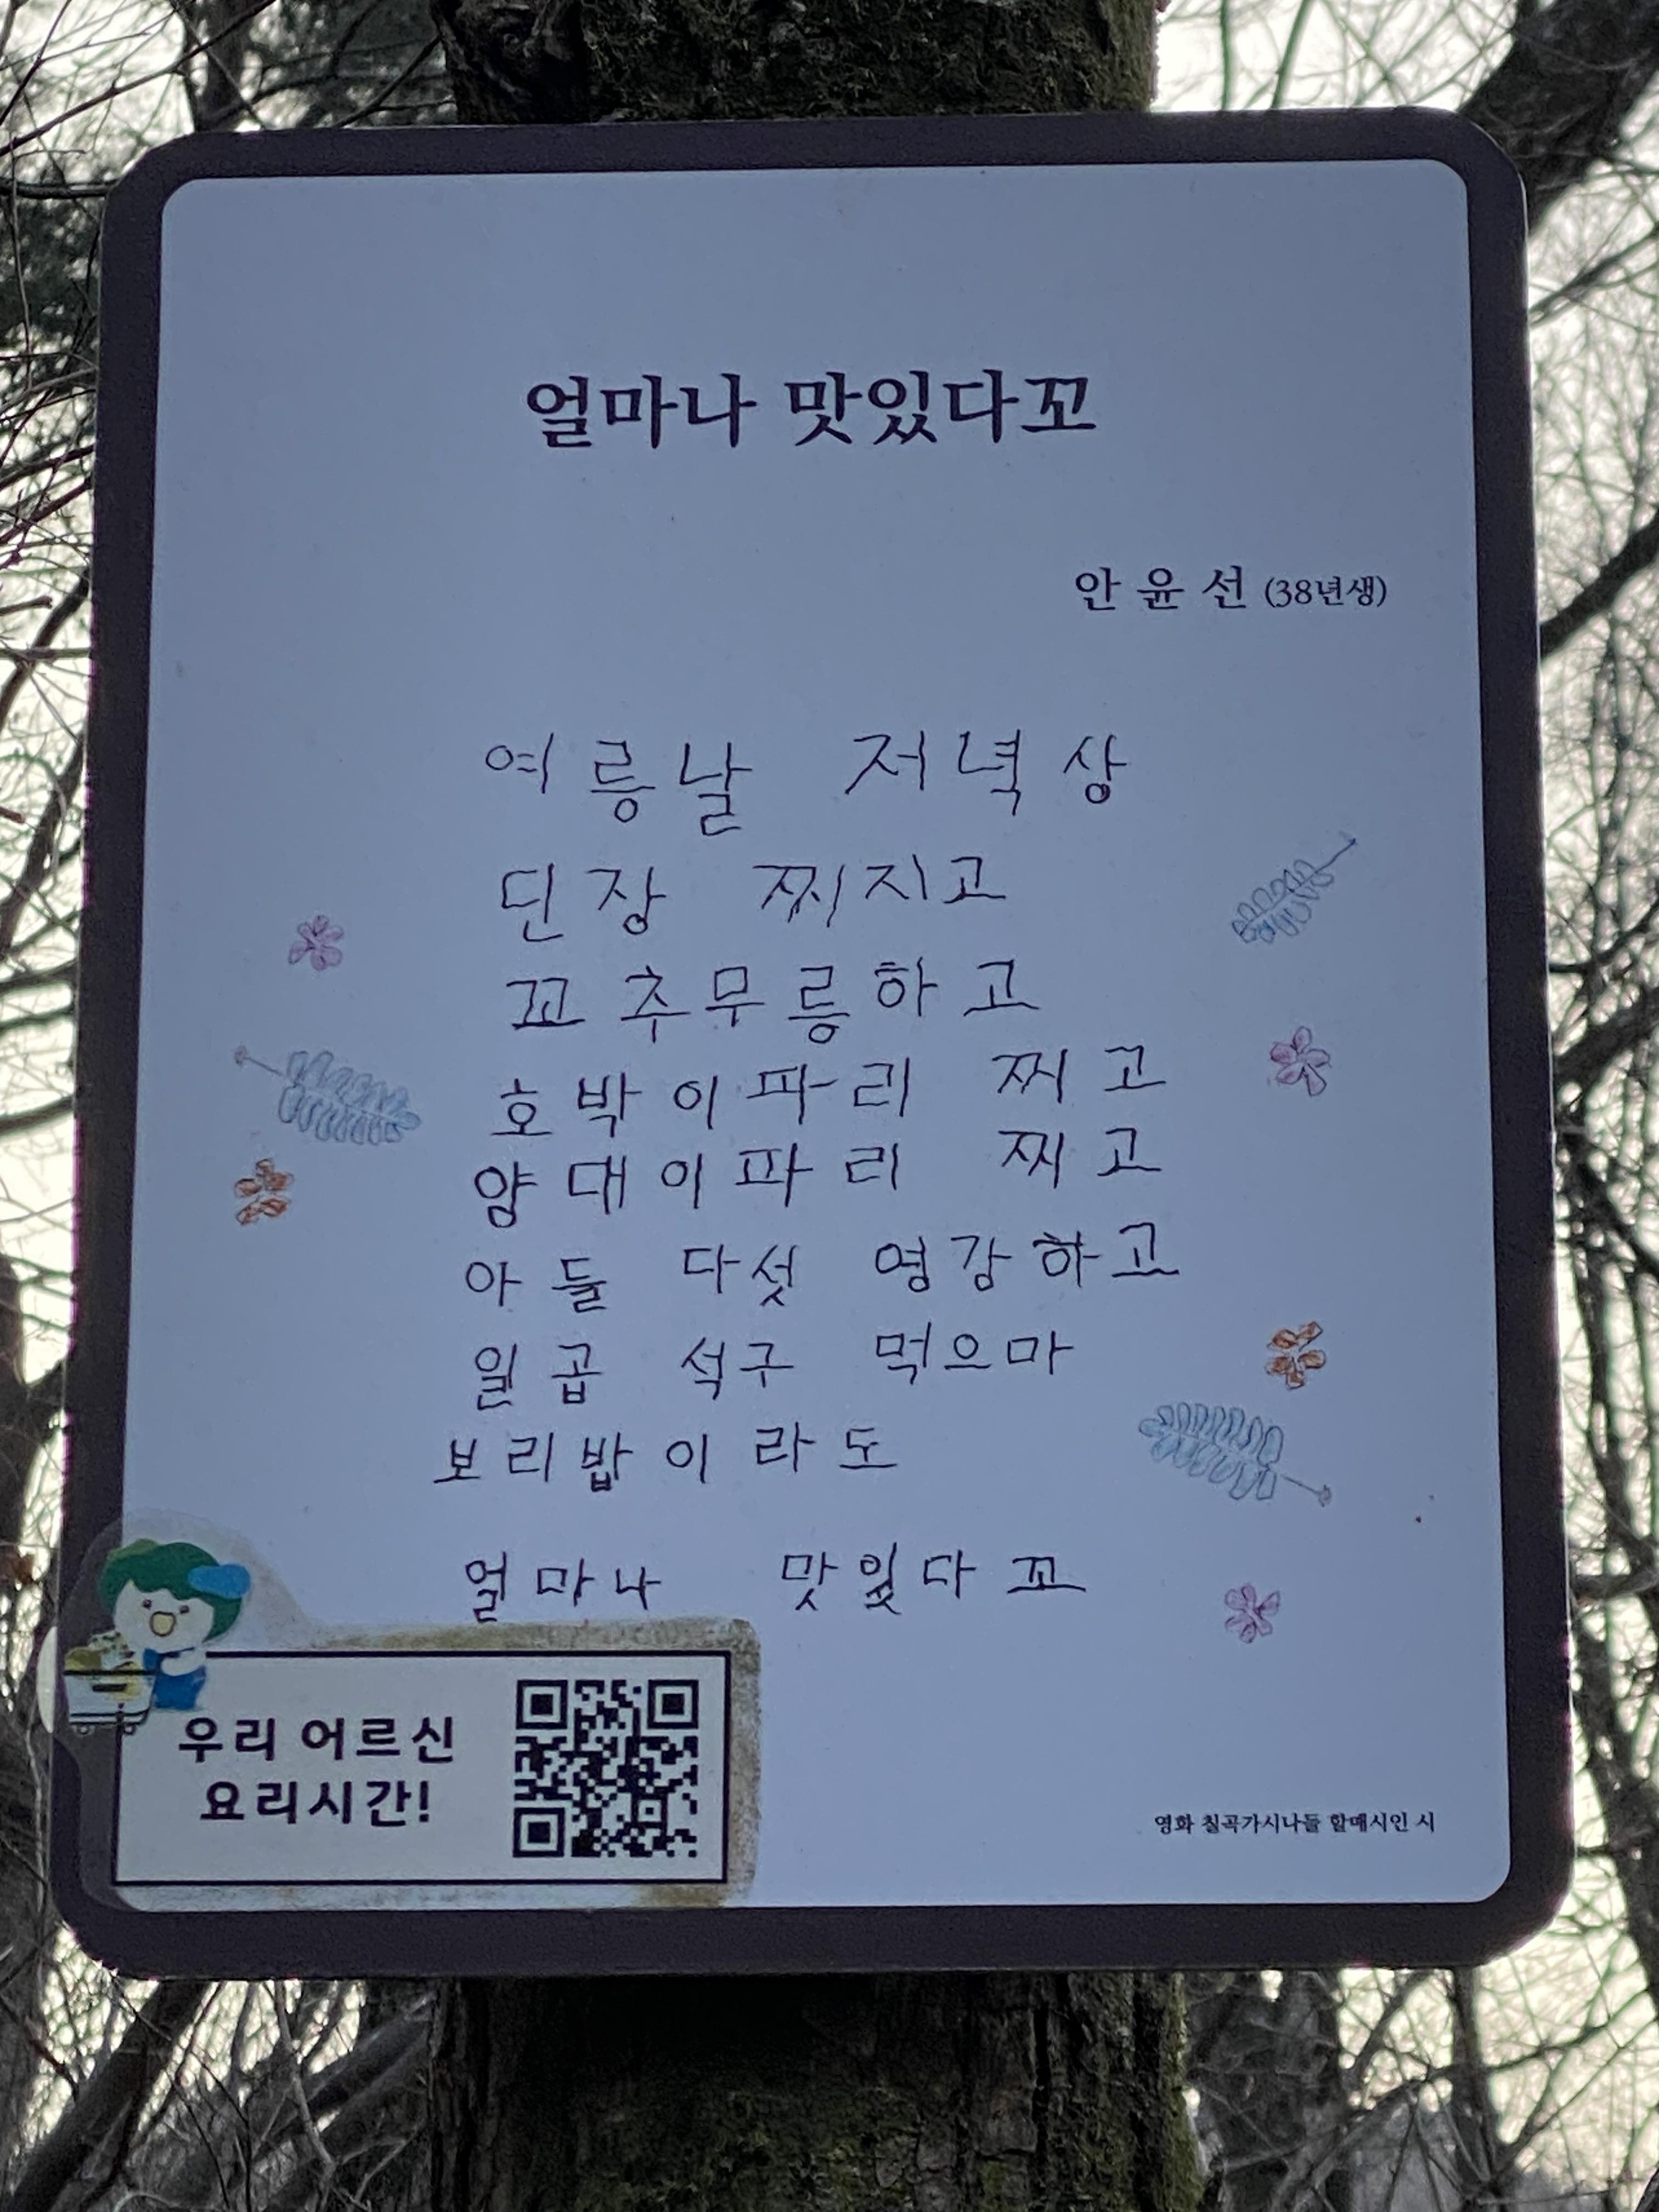 얼마나 맛있다꼬
안 윤 선 (38년생)
여릉날 저녁상
딘장 찌지고
꼬추무릉하고
호박이파리 찌고
양대이파리 찌고
아들 다섯 영감하고
일곱 석구 먹으마
보리밥이라도
얼마나 맛잇다꼬
우리 어르신
요리시간!
영화 칠곡가시나들 할매시인 시